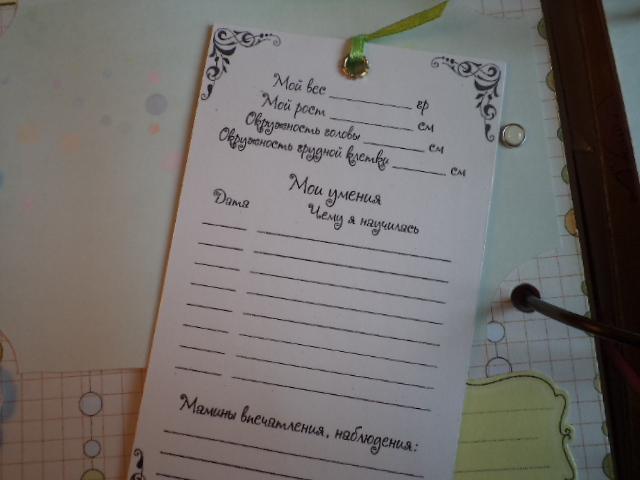 Мой вес ____________ гр
Мой рост ____________ см
Окружность головы _________ см
Окружность грудной клетки ________ см
Мои умения
Дата Чему я научилась
Мамины впечатления, наблюдения: